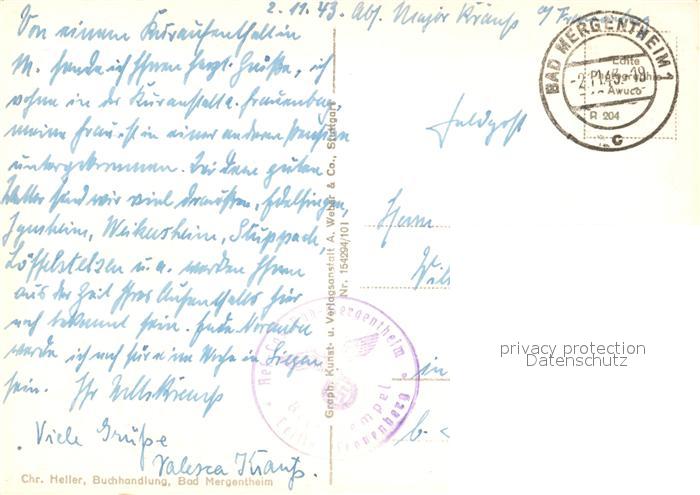 2.11.43. Abs. Major Krauß
Von einem Kuraufenthalt in
M. sende ich Ihnen herzl. Grüße, ich
wohne in der Kuranstalt a. Frauenberg,
meine Frau ist in einer anderen Pension
untergekommen. Bei dem guten
Wetter sind wir viel draußen, Edelfingen,
Igersheim, Weikersheim, Stuppach,
Löffelstelzen u. a. werden Ihnen
aus der Zeit Ihres Aufenthalts hier
noch bekannt sein. Ende November
werde ich noch für eine Woche in Siegen
sein. Ihr Willi Krauß
Viele Grüße
Valesca Krauß.
Chr. Heller, Buchhandlung, Bad Mergentheim
Graph. Kunst- u. Verlagsanstalt A. Weber & Co., Stuttgart
Nr. 154294/101
BAD MERGENTHEIM 1
-2.11.43.-19
c
Echte
Photographie
Awuco
R 204
Feldpost
Herrn
in
Mergentheim
privacy protection
Datenschutz